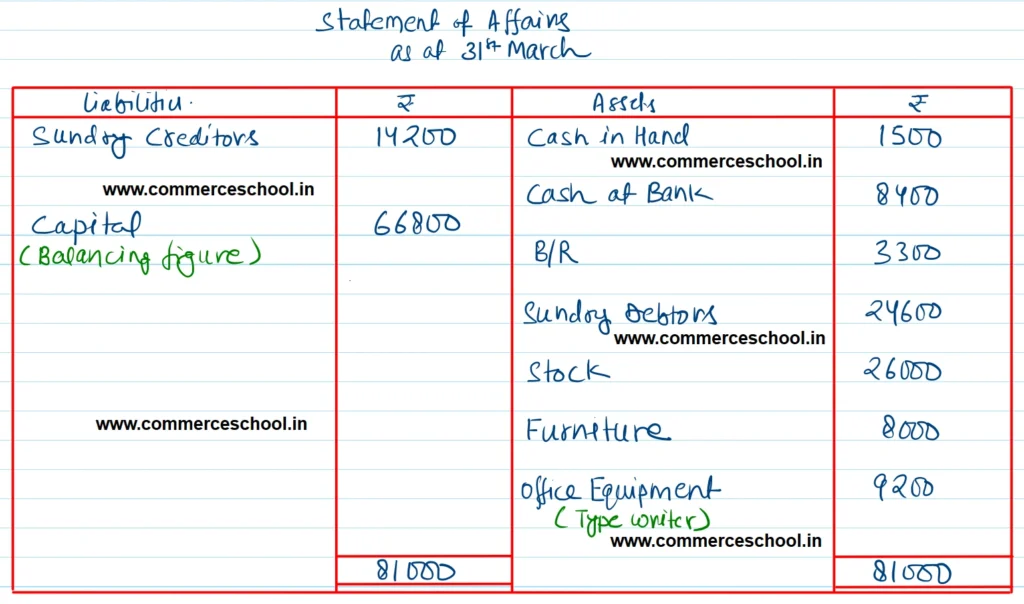 Statement of Affairs
as at 31st March
Liabilities. ₹ Assets ₹
Sundry Creditors 14200 Cash in Hand 1500
www.commerceschool.in
www.commerceschool.in Cash at Bank 8400
Capital 66800
(Balancing figure) B/R 3300
Sundry Debtors 24600
www.commerceschool.in
Stock 26000
www.commerceschool.in Furniture 8000
Office Equipment 9200
(Type writer)
www.commerceschool.in
81000 81000